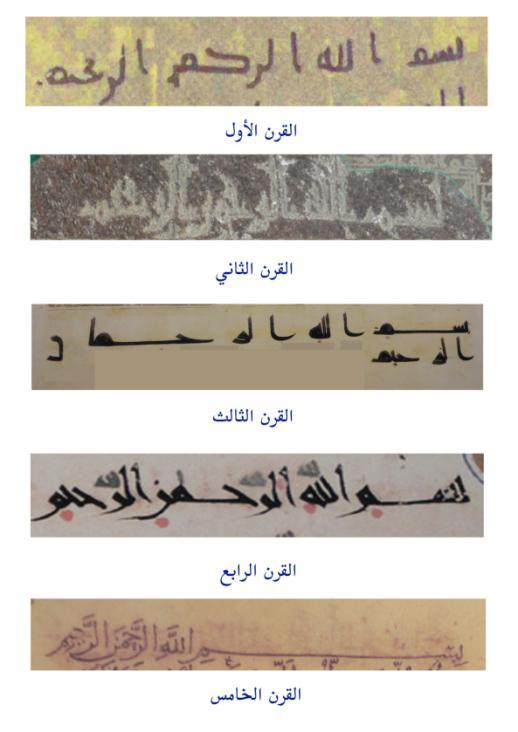 بسم الله الرحمن الرحيم
القرن الأول
بسم الله الرحمن الرحيم
القرن الثاني
بسم الله الرحمن
الرحيم
القرن الثالث
بسم الله الرحمن الرحيم
القرن الرابع
بسم الله الرحمن الرحيم
القرن الخامس